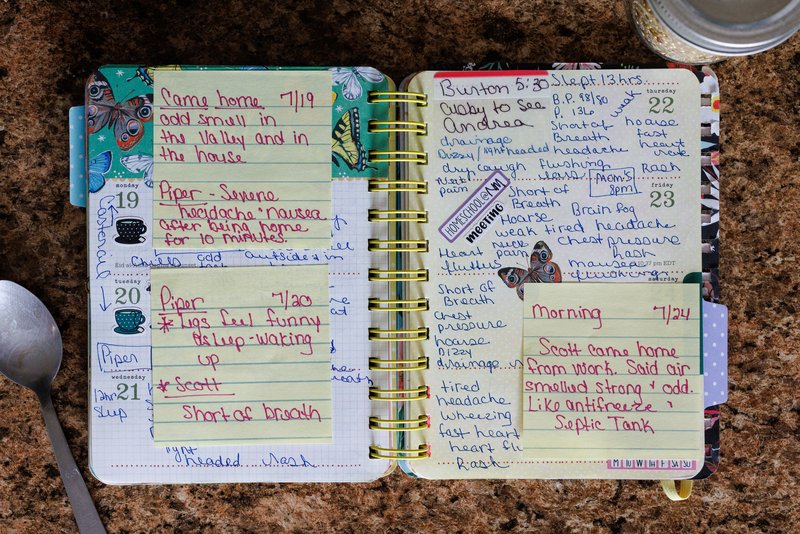 Came home 7/19
odd smell in
the Valley and in
the house
Piper - Severe
headache & nausea
after being home
for 10 minutes.
monday
19
Costeral
chills odd outside in
Piper 7/20
* Ligs feel funny
Asleep-waking
up
* Scott
Short of breath
tuesday
20
Piper
wednesday
21
12hr
slup
headed Rash
Burton 5:30
Cuaby to See
Andrea
drainage
Dizzy/light headed
dry cough flushing
neck pain
HOMESCHOOL@AWL
MEETING
Slept 13 hrs.
B.P. 98/50
P. 136
weak
Short of hoarse
breath fast
headache heart
rate
Rash
thursday
22
MOM'S
8pm
friday
23
Short of
Breath Brain fog
Hoarse
weak tired headache
neck pain chest pressure
Heart Rash
flutter nausea
saturday
Short of
Breath
chest
pressure
hoarse
Dizzy
drainage
tired
headache
wheezing
fast heart
heart flu
Rash
Morning 7/24
Scott came home
from work. Said air
smelled strong & odd.
Like antifreeze &
Septic Tank
M TU W TH F SA SU